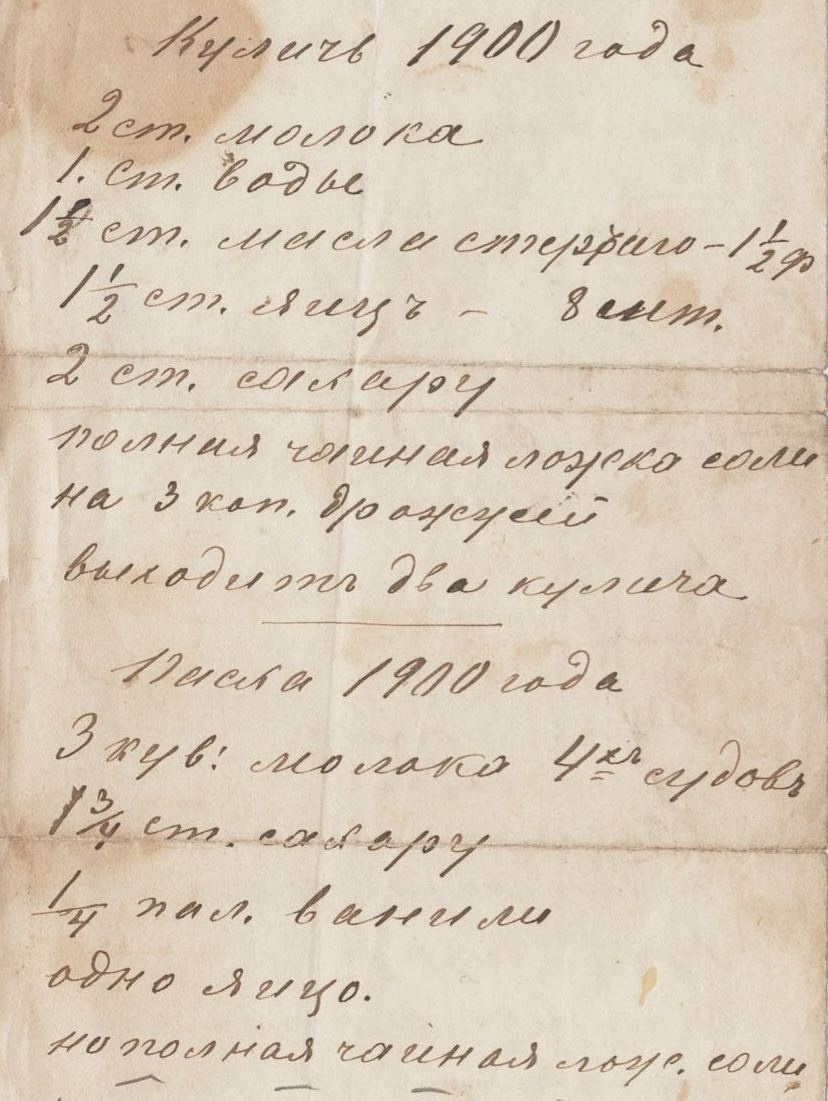 Куличъ 1900 года
2 ст. молока
1. ст. воды
1 1/2 ст. масла стертаго – 1 1/2 ф
1 1/2 ст. яицъ – 8 шт.
2 ст. сахару
полная чайная ложка соли
на 3 коп. дрожжей
выходитъ два кулича
Пасха 1900 года
3 кув: молока 4хъ судовъ
1 3/4 ст. сахару
1/4 пал. ванили
одно яицо.
неполная чайная лож. соли